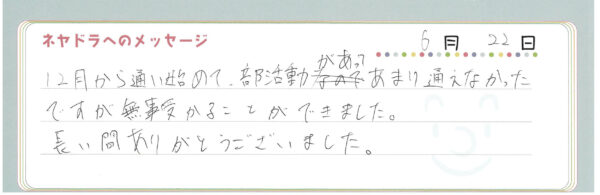 ネヤドラへのメッセージ
6月 22日
があって
12月から通い始めて、部活動なのであまり通えなかった
ですが無事受かることができました。
長い間ありがとうございました。